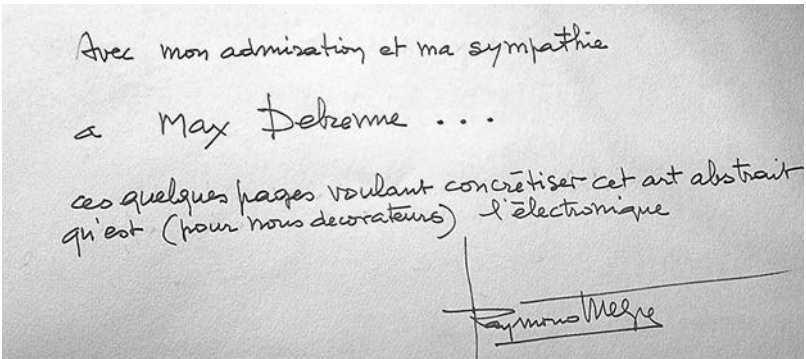 Avec mon admiration et ma sympathie
a Max Debrenne ...
ces quelques pages voulant concrétiser cet art abstrait
qu'est (pour nous decorateurs) l'électronique
Raymond Megre